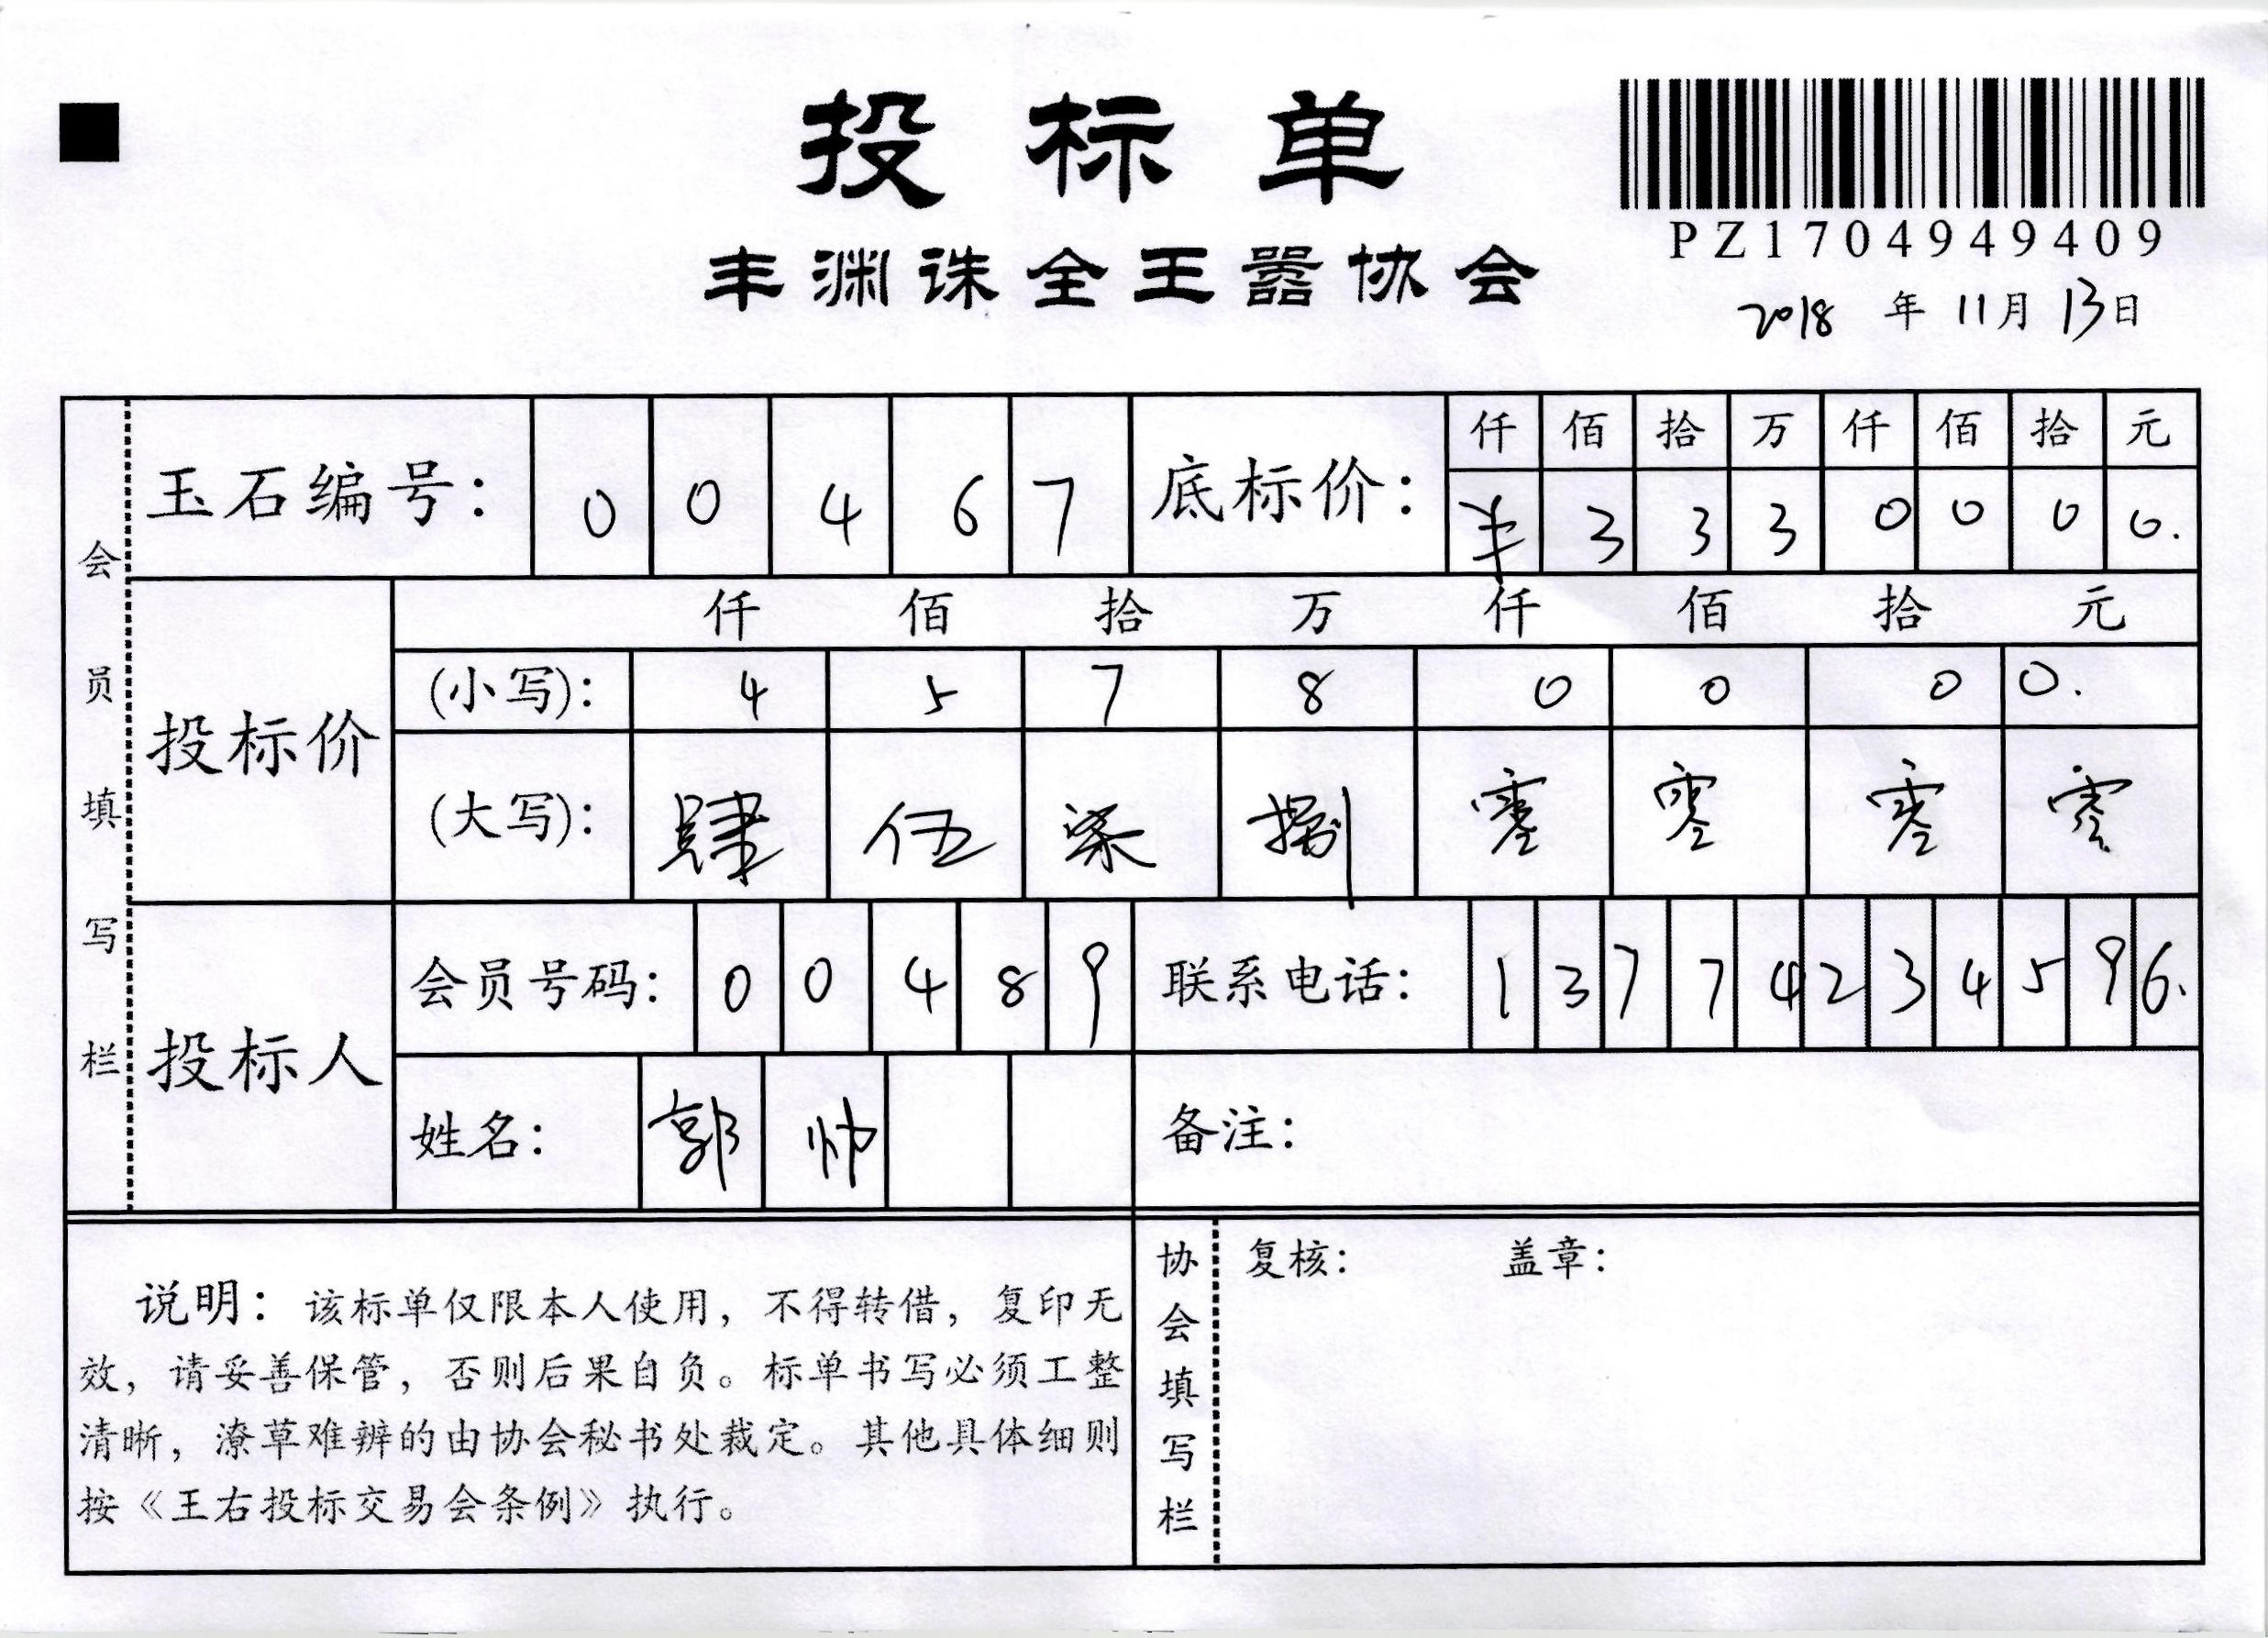 投标单
丰渊诛全王嚣协会
PZ1704949409
2018 年 11月 13日
会员填写栏
玉石编号： 0 0 4 6 7
底标价：
仟 佰 拾 万 仟 佰 拾 元
¥ 3 3 3 0 0 0 0.
投标价
仟 佰 拾 万 仟 佰 拾 元
(小写)： 4 5 7 8 0 0 0 0.
(大写)： 肆 伍 柒 捌 零 零 零 零
投标人
会员号码： 0 0 4 8 9
联系电话： 1 3 7 7 4 2 3 4 5 9 6.
姓名： 郭 帅
备注：
说明：该标单仅限本人使用，不得转借，复印无
效，请妥善保管，否则后果自负。标单书写必须工整
清晰，潦草难辨的由协会秘书处裁定。其他具体细则
按《王右投标交易会条例》执行。
协会填写栏
复核： 盖章：